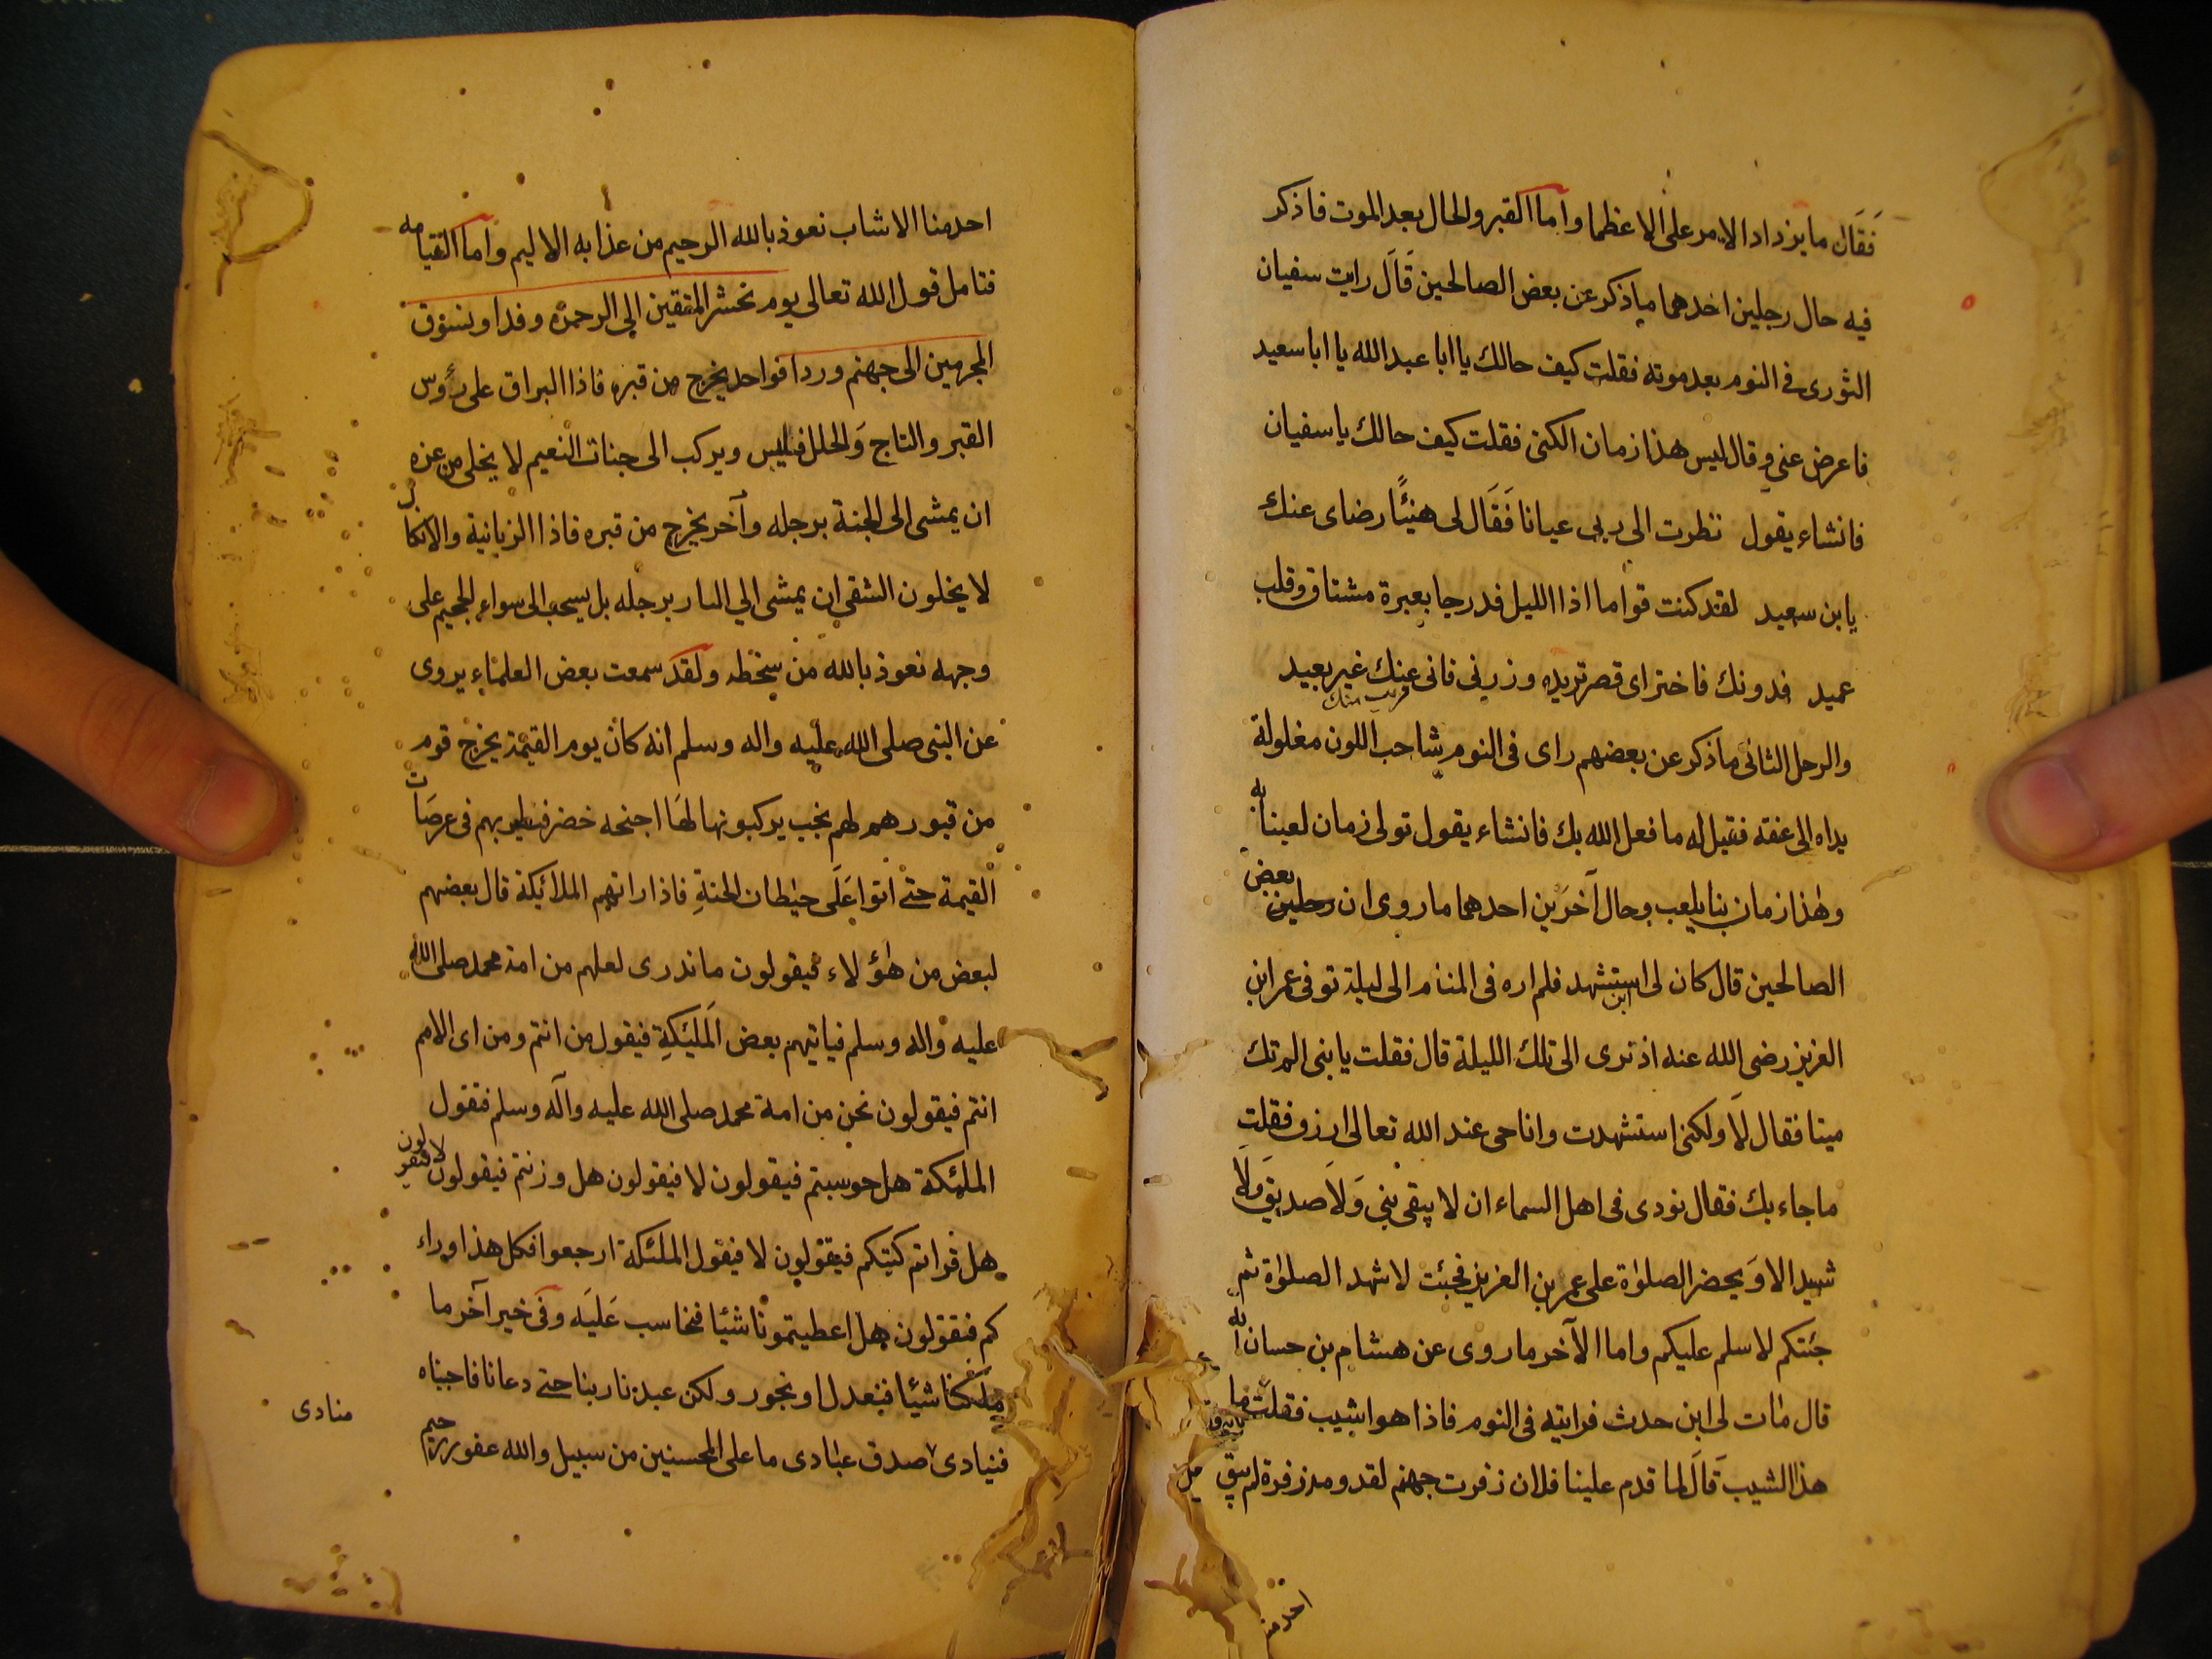 فَقَال ما يزداد الامر على الا عظما واما القبر والحال بعد الموت فاذكر
فيه حال رجلين احدهما ما ذكر عن بعض الصالحين قَالَ رايت سفيان
الثورى فى النوم بعد موته فقلت كيف حالك يا ابا عبد الله يا ابا سعيد
فاعرض عنى وقال ليس هذا زمان الكنى فقلت كيف حالك يا سفيان
فانشاء يقول نظرت الى ربى عيانا فَقَال لى هنيئًا رضاى عنك
يا بن سعيد لقد كنت قواما اذا الليل قد رجا بعبرة مشتاق وقلب
عميد فدونك فاختر اى قصر تريده وزرنى فانى عنك غير بعيد
قريب منك
والرجل الثانى ما ذكر عن بعضهم راى فى النوم شاحب اللون مغلولة
يداه الى عنقه فقيل له ما فعل الله بك فانشاء يقول تولى زمان لعبنا به
وهذا زمان بنا يلعب وحال آخرَين احدهما ما روى ان رجلين بعض
الصالحين قال كان لى ابن استشهد فلم اره فى المنام الى ليلة توفى عمر ابن
العزيز رضى الله عنه اذ ترى الى تلك الليلة قال فقلت يا بنى الم تك
ميتا فقال لَا ولكنى استشهدت وانا حى عند الله تعالى ارزق فقلت
ما جاء بك فقال نودى فى اهل السماء ان لا يبقى نبى وَلَا صديق وَلَا
شهيد الا وَيحضر الصلوٰة على عمر بن العزيز فجئت لاشهد الصلوٰة ثم
جئتكم لاسلم عليكم واما الآخر ما روى عن هشام بن حسان انه
قال مات لى ابن حدث فرايته فى النوم فاذا هو اشيب فقلت ما
هذا الشيب قَالَ لما قدم علينا فلان زفرت جهنم لقدومه زفرة لم يبق
احد منا
احد منا الا شاب نعوذ بالله الرحيم من عذابه الاليم واما القيامه
فتامل قول الله تعالى يوم نحشر المتقين الى الرحمن وفدا ونسوق
المجرمين الى جهنم وردا فواحد يخرج من قبره فاذا البراق على رؤس
القبر والتاج وَالحلل فيلبس ويركب الى جنات النعيم لا يخلى من عزه
ان يمشى الى الجنة برجله وآخر يخرج من قبره فاذا الزبانية والانكال
لا يخلون الشقى ان يمشى الى النار برجله بل يسحب الى سواء الجحيم على
وجهه نعوذ بالله من سخطه ولقد سمعت بعض العلماء يروى
عن النبى صلى الله عليه واله وسلم انه كان يوم القيٰمة يخرج قوم
من قبورهم لهم نجب يركبونها لهَا اجنحه خضر فتطير بهم فى عرصَات
القيمة حتى اتوا عَلَى حيطان الجنةِ فاذا راتهم الملائكة قال بعضهم
لبعض من هٰؤلاء فيقولون ما ندرى لعلهم من امة محمد صلى الله
عليه واله وسلم فياتيهم بعض المَلٰئكةِ فيقول من انتم ومن اى الامم
انتم فيقولون نحن من امة محمد صلى الله عليه وآله وسلم فتقول
الملٰئكة هل حوسبتم فيقولون لا فيقولون هل وزنتم فيقولون لا فيقولون
هل قراتم كتبكم فيقولون لا فيقول الملٰئكة ارجعوا فكل هذا وراء
كم فيقولون هل اعطيتمونا شيئا فنحاسب عَليَه وفى خبر آخر ما
ملكنا شيئا فنعدل او نجور ولكن عبدنا ربنا حتى دعانا فاجبناه
فينادى صدق عبادى ما على المحسنين من سبيل والله غفور رحيم
منادى